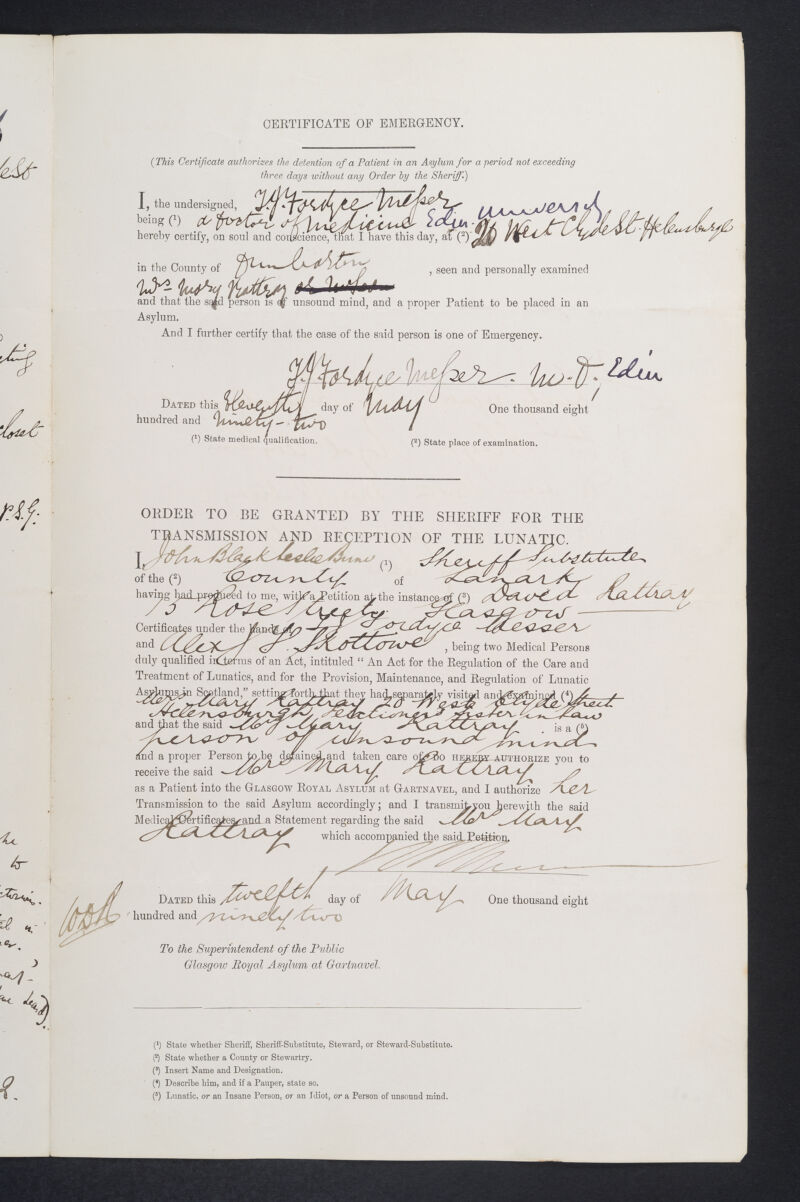 CERTIFICATE OF EMERGENCY.
(This Certificate authorizes the detention of a Patient in an Asylum for a period not exceeding
three days without any Order by the Sheriff.)
I, the undersigned, Fordyce Messer
being (¹) a Doctor of Medicine Edin. University
hereby certify, on soul and conscience, that I have this day, at (²) 20 West Clyde St. Helensburgh
in the County of Dumbarton , seen and personally examined
Mrs Mary Rattray
and that the said person is of unsound mind, and a proper Patient to be placed in an
Asylum.
And I further certify that the case of the said person is one of Emergency.
Fordyce Messer. M.D., Edin
DATED this Eleventh day of May One thousand eight
hundred and Ninety-two
(¹) State medical qualification. (²) State place of examination.
ORDER TO BE GRANTED BY THE SHERIFF FOR THE
TRANSMISSION AND RECEPTION OF THE LUNATIC.
I, John Black Leslie (¹) Sheriff Substitute
of the (²) County of Lanark
having had produced to me, with a Petition at the instance of (³) David Rattray
Rose Street, Glasgow
Certificates under the hands of Fordyce Messer
and Alex , being two Medical Persons
duly qualified in terms of an Act, intituled “ An Act for the Regulation of the Care and
Treatment of Lunatics, and for the Provision, Maintenance, and Regulation of Lunatic
Asylums in Scotland,” setting forth that they had separately visited and examined (⁴)
Mrs Mary Rattray 20 West Clyde Street
Helensburgh, Petitioner's Sister in law
and that the said Mrs Mary Rattray is a (⁵)
person of unsound mind
and a proper Person to be detained and taken care of DO HEREBY AUTHORIZE you to
receive the said Mrs Mary Rattray
as a Patient into the GLASGOW ROYAL ASYLUM at GARTNAVEL, and I authorize her
Transmission to the said Asylum accordingly; and I transmit you herewith the said
Medical Certificates, and a Statement regarding the said Mrs Mary
Rattray which accompanied the said Petition.
DATED this twelfth day of May One thousand eight
hundred and ninety two
To the Superintendent of the Public
Glasgow Royal Asylum at Gartnavel.
(¹) State whether Sheriff, Sheriff-Substitute, Steward, or Steward-Substitute.
(²) State whether a County or Stewartry.
(³) Insert Name and Designation.
(⁴) Describe him, and if a Pauper, state so.
(⁵) Lunatic, or an Insane Person, or an Idiot, or a Person of unsound mind.